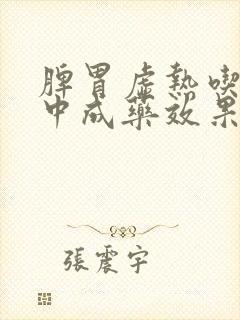 脾胃虛熱喫
中成藥效果
張震宇